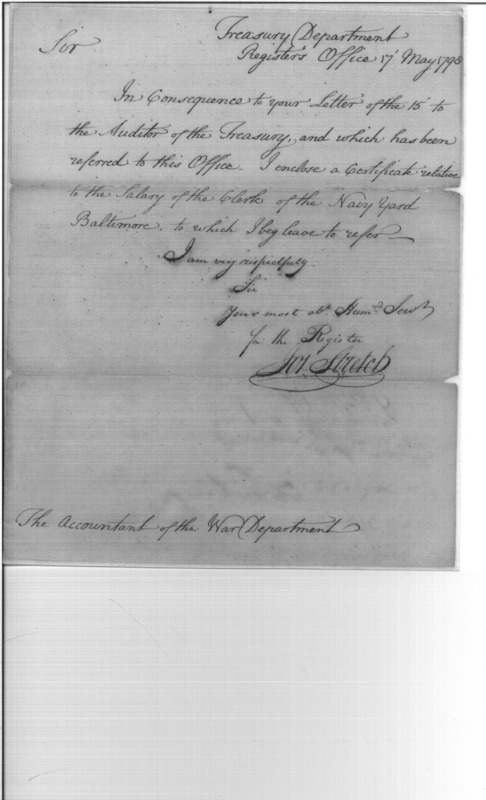 Treasury Department
Register's Office 17 May 1798
Sir
In Consequence to your Letter of the 15 to
the Auditor of the Treasury, and which has been
referred to this Office. I enclose a Certificate relative
to the Salary of the Clerk of the Navy Yard
Baltimore, to which I beg leave to refer
I am very respectfully
Sir
Your most obt Humb Servt
for the Register
Jos. Stretch
The Accountant of the War Department